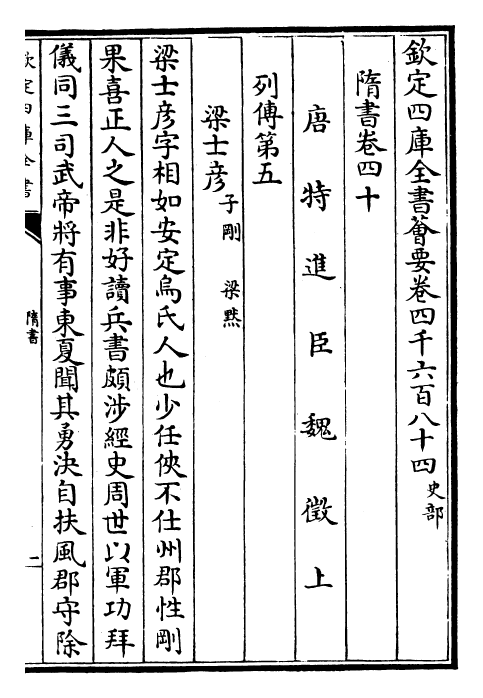 欽定四庫全書薈要卷四千六百八十四史部
隋書卷四十
唐特進臣魏徵上
列傳第五
梁士彦子剛 梁黙
梁士彦字相如安定烏氏人也少任俠不仕州郡性剛
果喜正人之是非好讀兵書頗涉經史周世以軍功拜
儀同三司武帝將有事東夏聞其勇決自扶風郡守除
欽定四庫全書
隋書